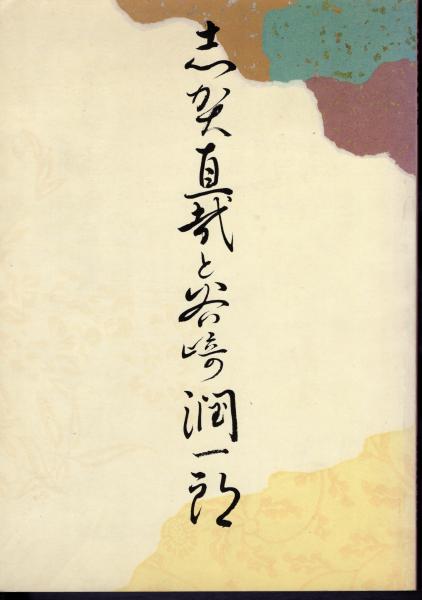 志賀直哉と谷崎潤一郎